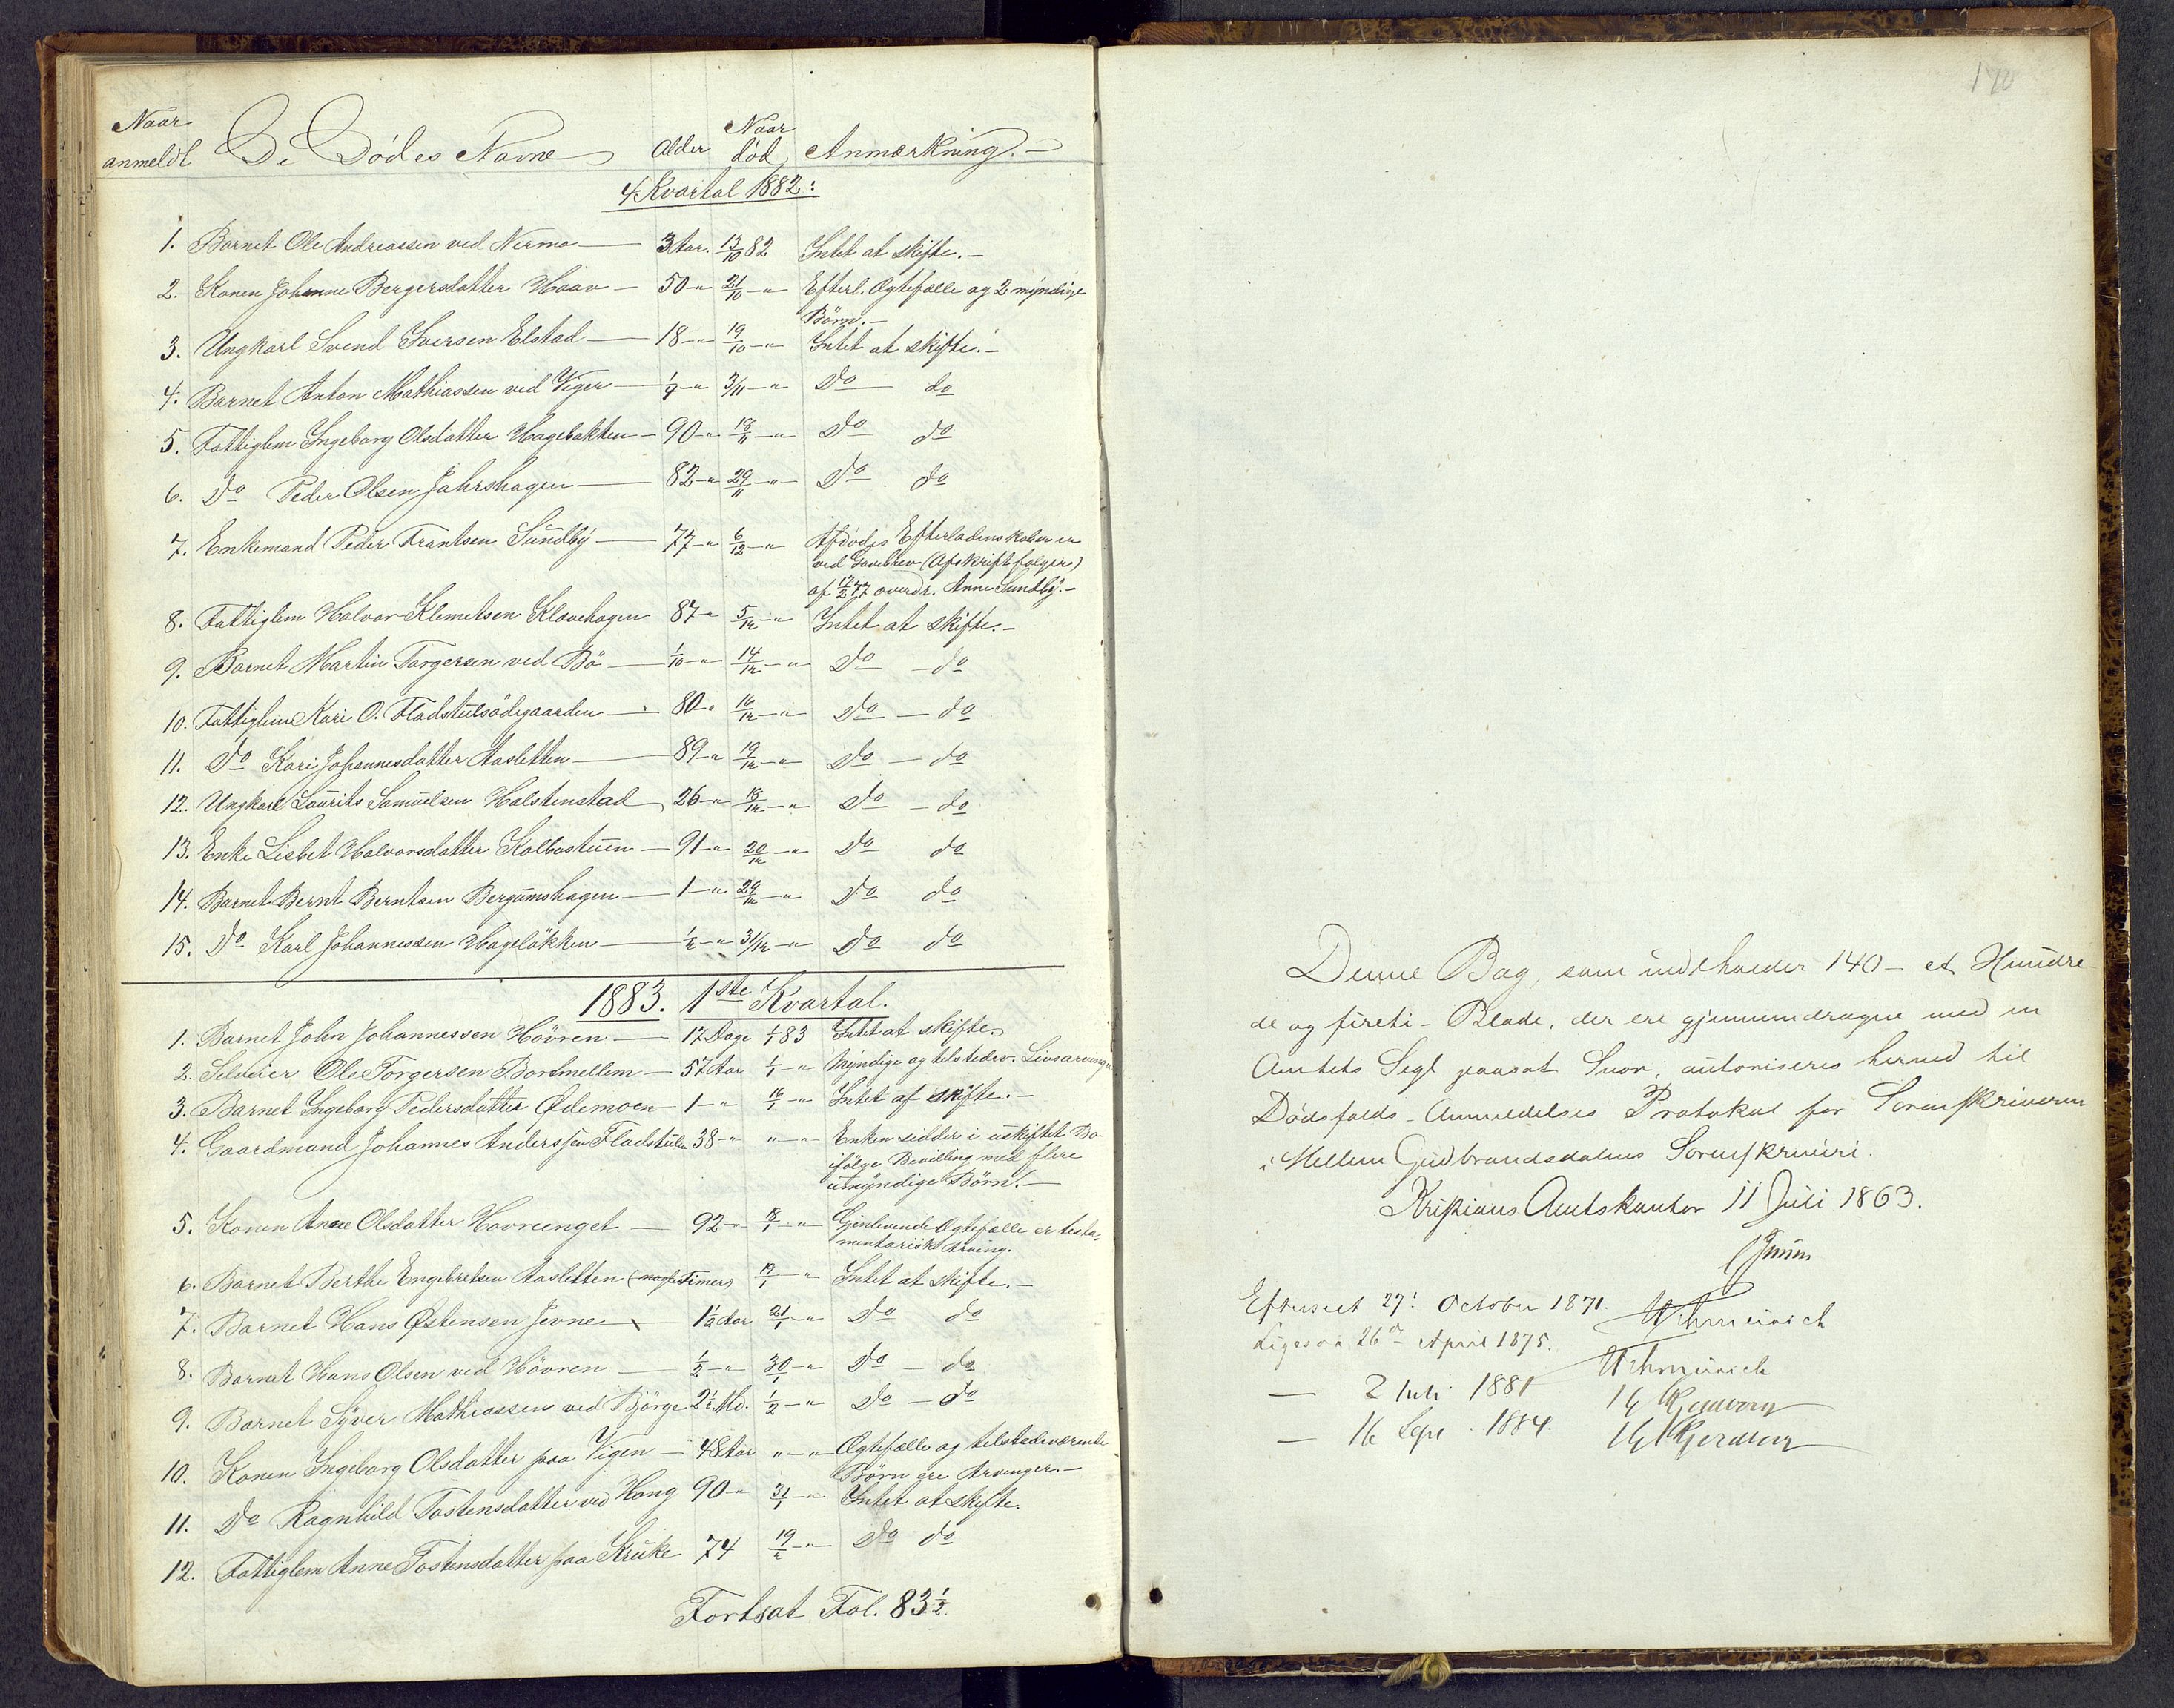 Naar anmeldt De Dödes Navne Alder Naar död Anmærkning.-
4 Kvartal 1882:
1. Barnet Ole Andreassen ved Nermo - 3 Aar. 13/10 82 Intet at skifte.-
2. Konen Johanne Bergersdatter Haav - 50 -"- 21/10 -"- Efterl. Ægtefælle og 2 myndige
Börn.-
3. Ungkarl Svend Iversen Elstad - 18 -"- 19/10 -"- Intet at skifte.-
4. Barnet Anton Mathiassen ved Viger - 1/4 -"- 3/11 -"- Do do
5. Fattiglem Ingeborg Olsdatter Hagebakken - 90 -"- 18/11 -"- Do do
6. Do Peder Olsen Jahrshagen - 82 -"- 29/11 -"- Do do
7. Enkemand Peder Frantsen Sundby - 77 -"- 6/12 -"- Afdödes Efterladenskaber er
ved Gavebrev (Afskrift følger)
af 17/2 77 overdr. Anne Sundby.-
8. Fattiglem Halvor Klemetsen Klovehagen 87 -"- 5/12 -"- Intet at skifte.-
9. Barnet Martin Torgersen ved Bö - 1/10 -"- 14/12 -"- Do - do
10. Fattiglem Kari O. Fladstulsödegaarden - 80 -"- 16/12 -"- Do - do
11. Do Kari Johannesdatter Aasletten - 89 -"- 19/12 -"- Do - do
12. Ungkarl Laurits Samuelsen Halstenstad 26 -"- 18/12 -"- Do - do
13. Enke Lisbet Halvorsdatter Kolbostuen - 91 -"- 20/12 -"- Do do
14. Barnet Bernt Berntsen Bergumshagen - 1 -"- 29/12 -"- Do do
15. Do Karl Johannessen Hagelökken - 1/2 -"- 31/12 -"- Do do
1883. 1ste Kvartal.
1. Barnet John Johannessen Hövren - 17 Dage 1/1 83 Intet at skifte
2. Selveier Ole Torgersen Bortmellem - 57 Aar 1/1 -"- Myndige og tilstedev. Livsarvinger
3. Barnet Ingeborg Pedersdatter Ødemoen 1 -"- 16/1 -"- Intet at skifte.-
4. Gaardmand Johannes Anderssen Fladstulen 38 -"- "-"- Enken sidder i uskiftet Bo
ifölge Bevilling med flere
umyndige Börn.-
5. Konen Anne Olsdatter Havreenget - 92 -"- 18/1 -"- Gjenlevende Ægtefælle er testa-
mentarisk Arving.
6. Barnet Berthe Engebretsen Aasletten (nogle Timer) 19/1 -"- Intet at skifte.-
7. Barnet Hans Østensen Jevne 1 1/2 Aar 21/1 -"- Do do
8. Barnet Hans Olsen ved Hövren - 1/2 -"- 30/1 -"- Do - do
9. Barnet Syver Mathiassen ved Bjørge 2 1/2 Md. 1/2 -"- Do - do
10. Konen Ingeborg Olsdatter paa Vigen - 48 Aar "-"- Ægtefælle og tilstedeværende
Börn ere Arvinger.-
11. Do Ragnhild Tostensdatter ved Haug 90 -"- 31/1 -"- Intet at skifte.
12. Fattiglem Anne Tostensdatter paa Kruke 74 19/2 -"- Do do
Fortsat Fol. 83 1/2.
140
Denne Bog, som indeholder 140 - et Hundre-
de og fireti - Blade, der ere gjennemdragne med en
Amtets Segl paasat Snor, autoriseres herved til
Dødsfalds-Anmeldelses Protokol for Sorenskriveren
i Mellem Gudbrandsdalens Sorenskriveri.
Kristians Amtskontor 11 Juli 1863.
Efterseet 27: October 1871.
Ligesaa 26de April 1875.
- 2 Juli 1881
- 16 Sept 1884.